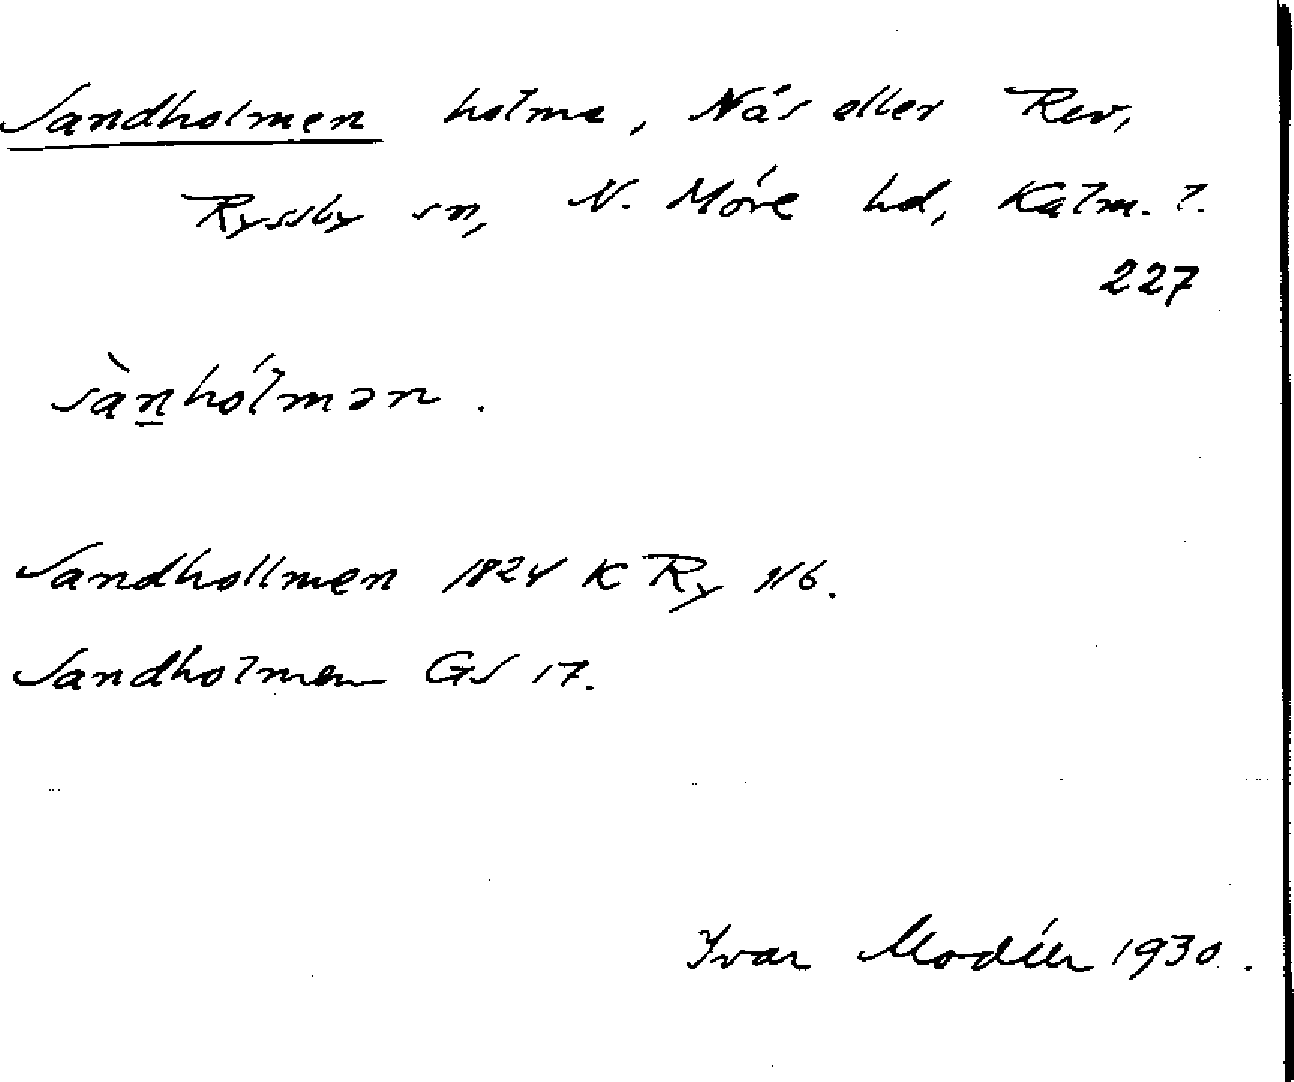 Sandholmen holme, Näs eller Rev,
Ryssby sn, N. Möre hd, Kalm. l.
227
sànhólmən.
Sandhollmen 1824 K Ry 116.
Sandholmen GS 17.
Ivar Modéer 1930.